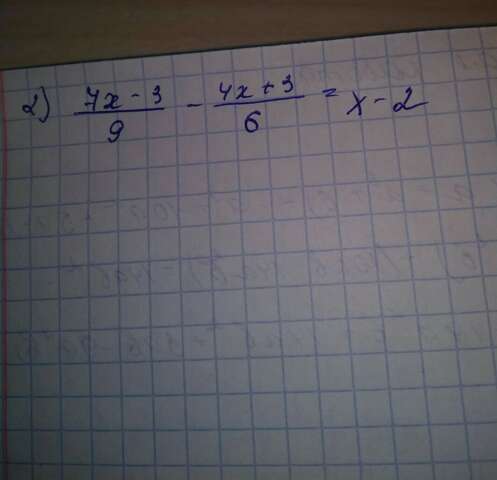 2) (7x - 3)/9 - (4x + 3)/6 = x - 2